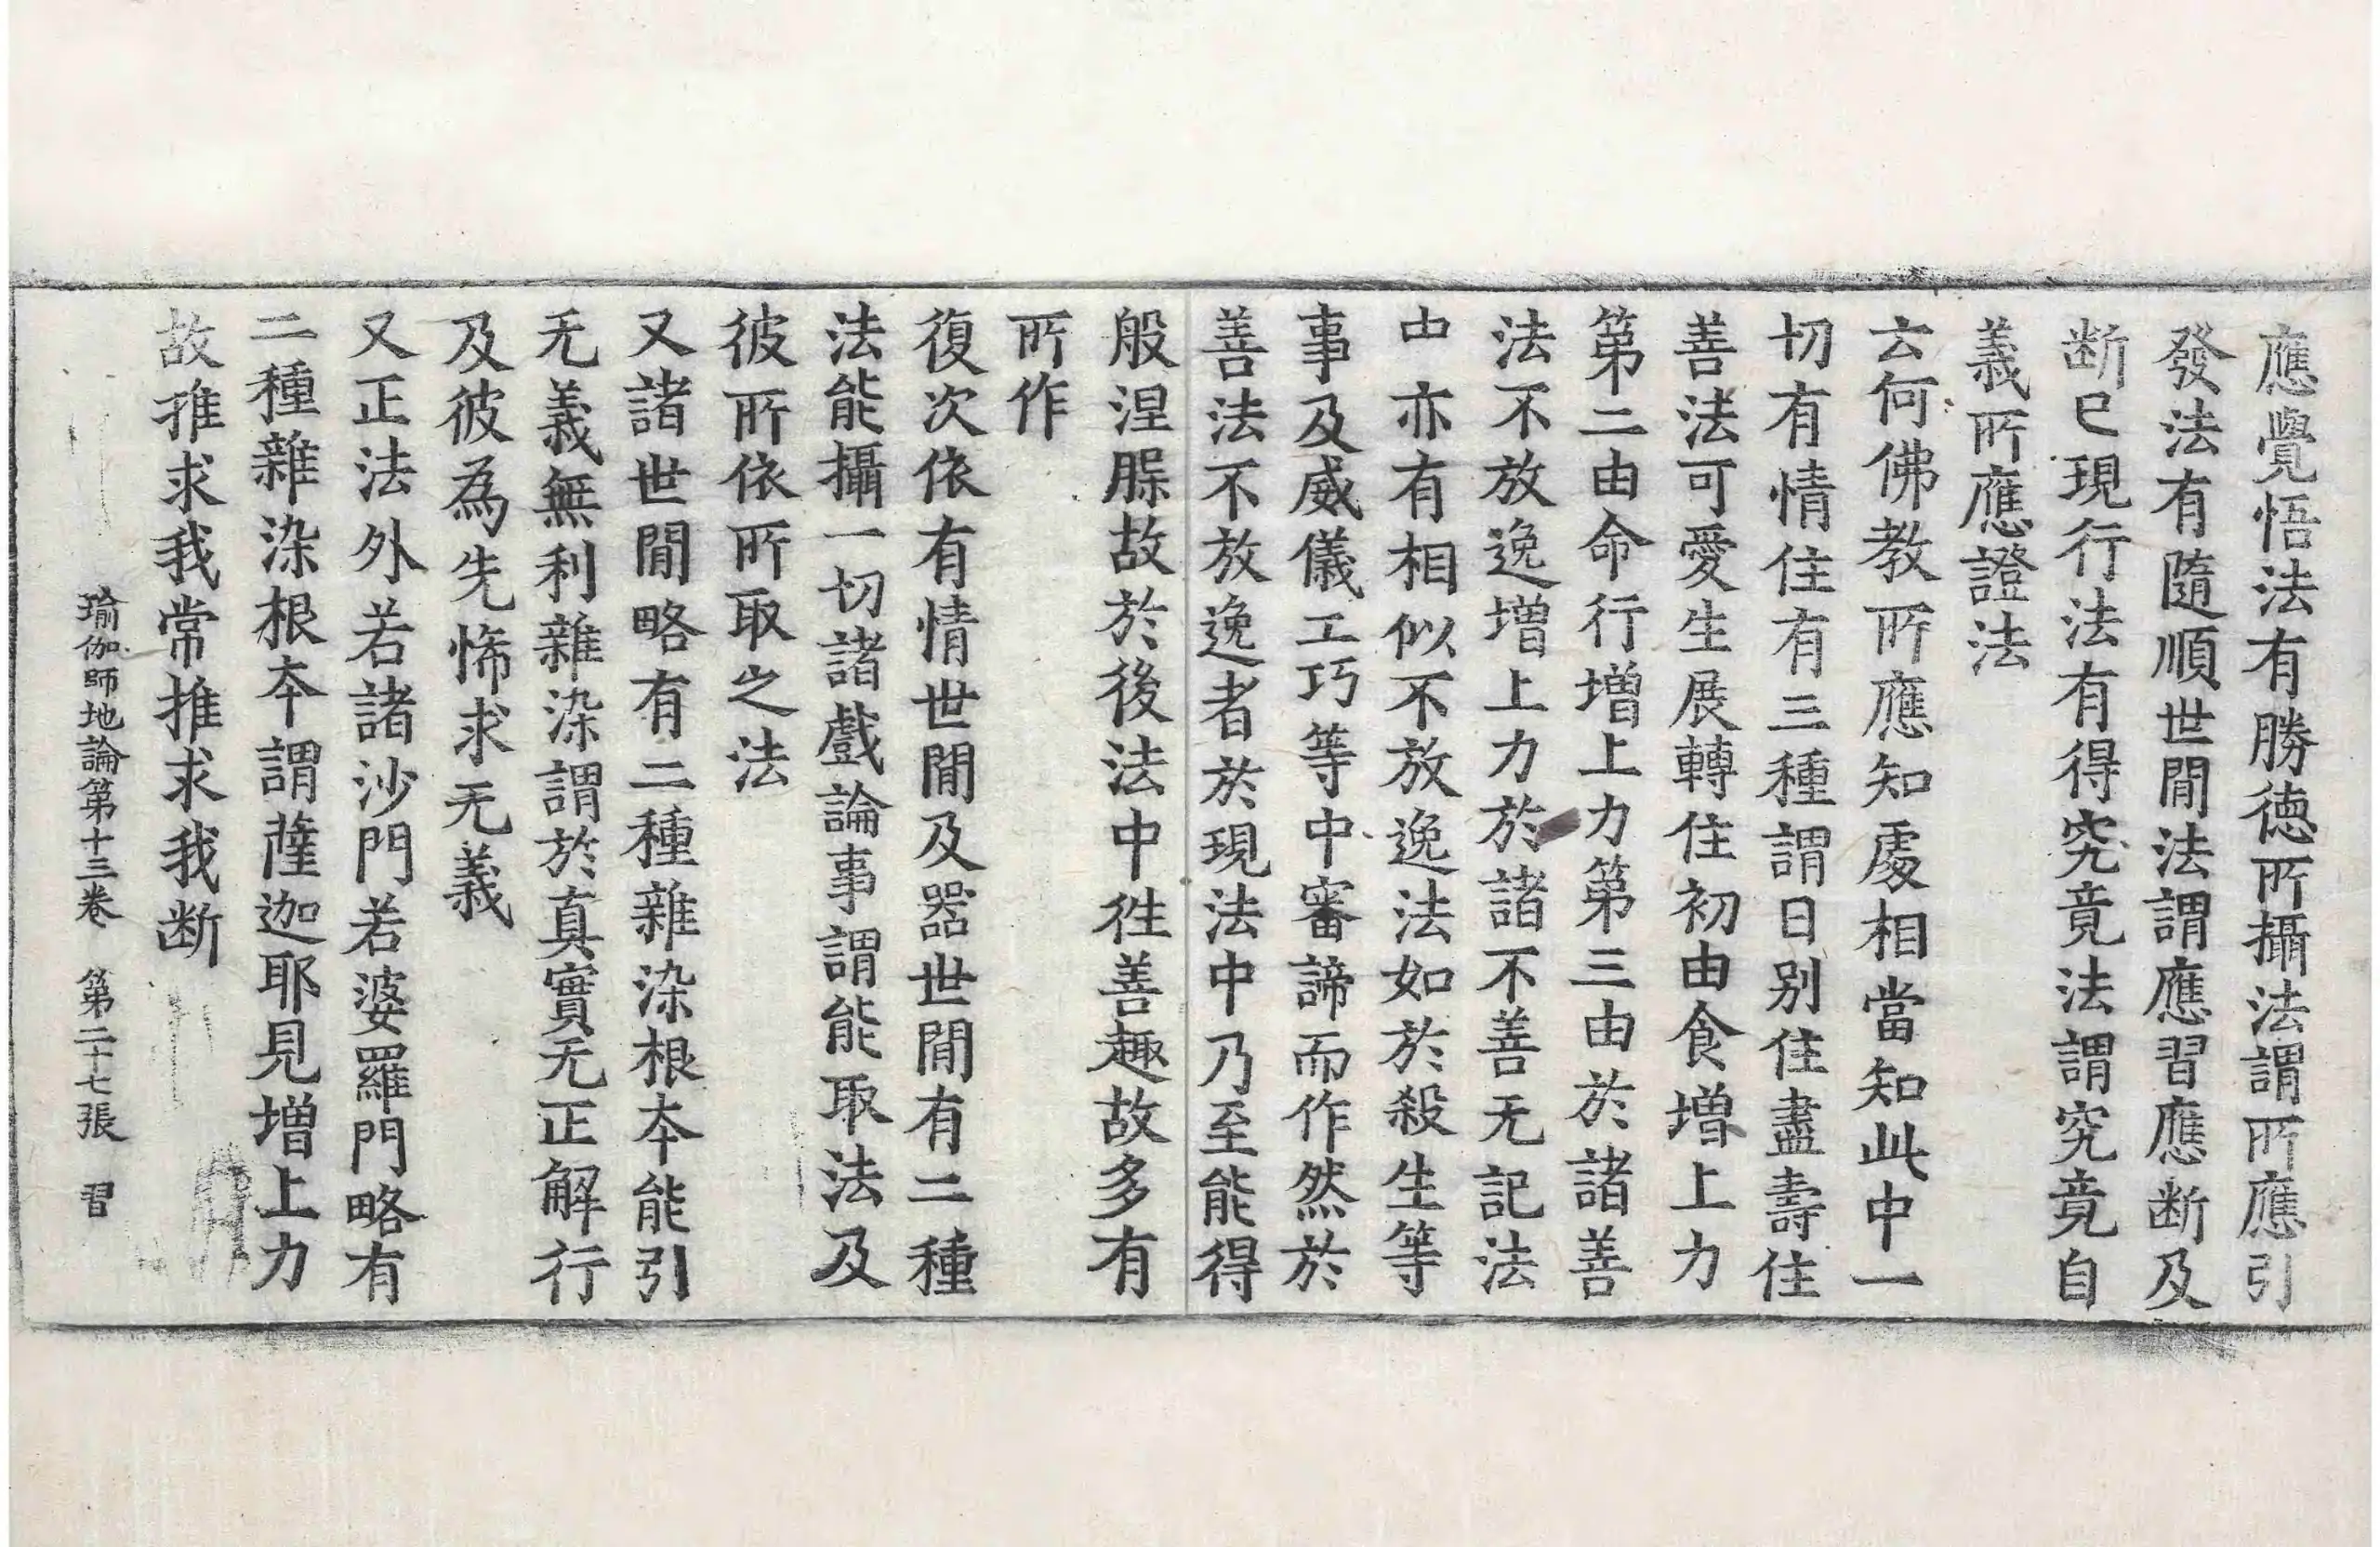 應覺悟法有勝德所攝法謂所應引
發法有隨順世間法謂應習應断及
断已現行法有得究竟法謂究竟自
義所應證法
云何佛教所應知處相當知此中一
切有情住有三種謂日別住盡壽住
善法可愛生展轉住初由食增上力
第二由命行增上力第三由於諸善
法不放逸增上力於諸不善无記法
中亦有相似不放逸法如於殺生等
事及威儀工巧等中審諦而作然於
善法不放逸者於現法中乃至能得
般涅槃故於後法中徃善趣故多有
所作
復次依有情世間及器世間有二種
法能攝一切諸戲論事謂能取法及
彼所依所取之法
又諸世間略有二種雜染根本能引
无義無利雜染謂於真實无正解行
及彼為先悕求无義
又正法外若諸沙門若婆羅門略有
二種雜染根本謂薩迦耶見增上力
故推求我常推求我断
瑜伽師地論第十三卷 第二十七張 習